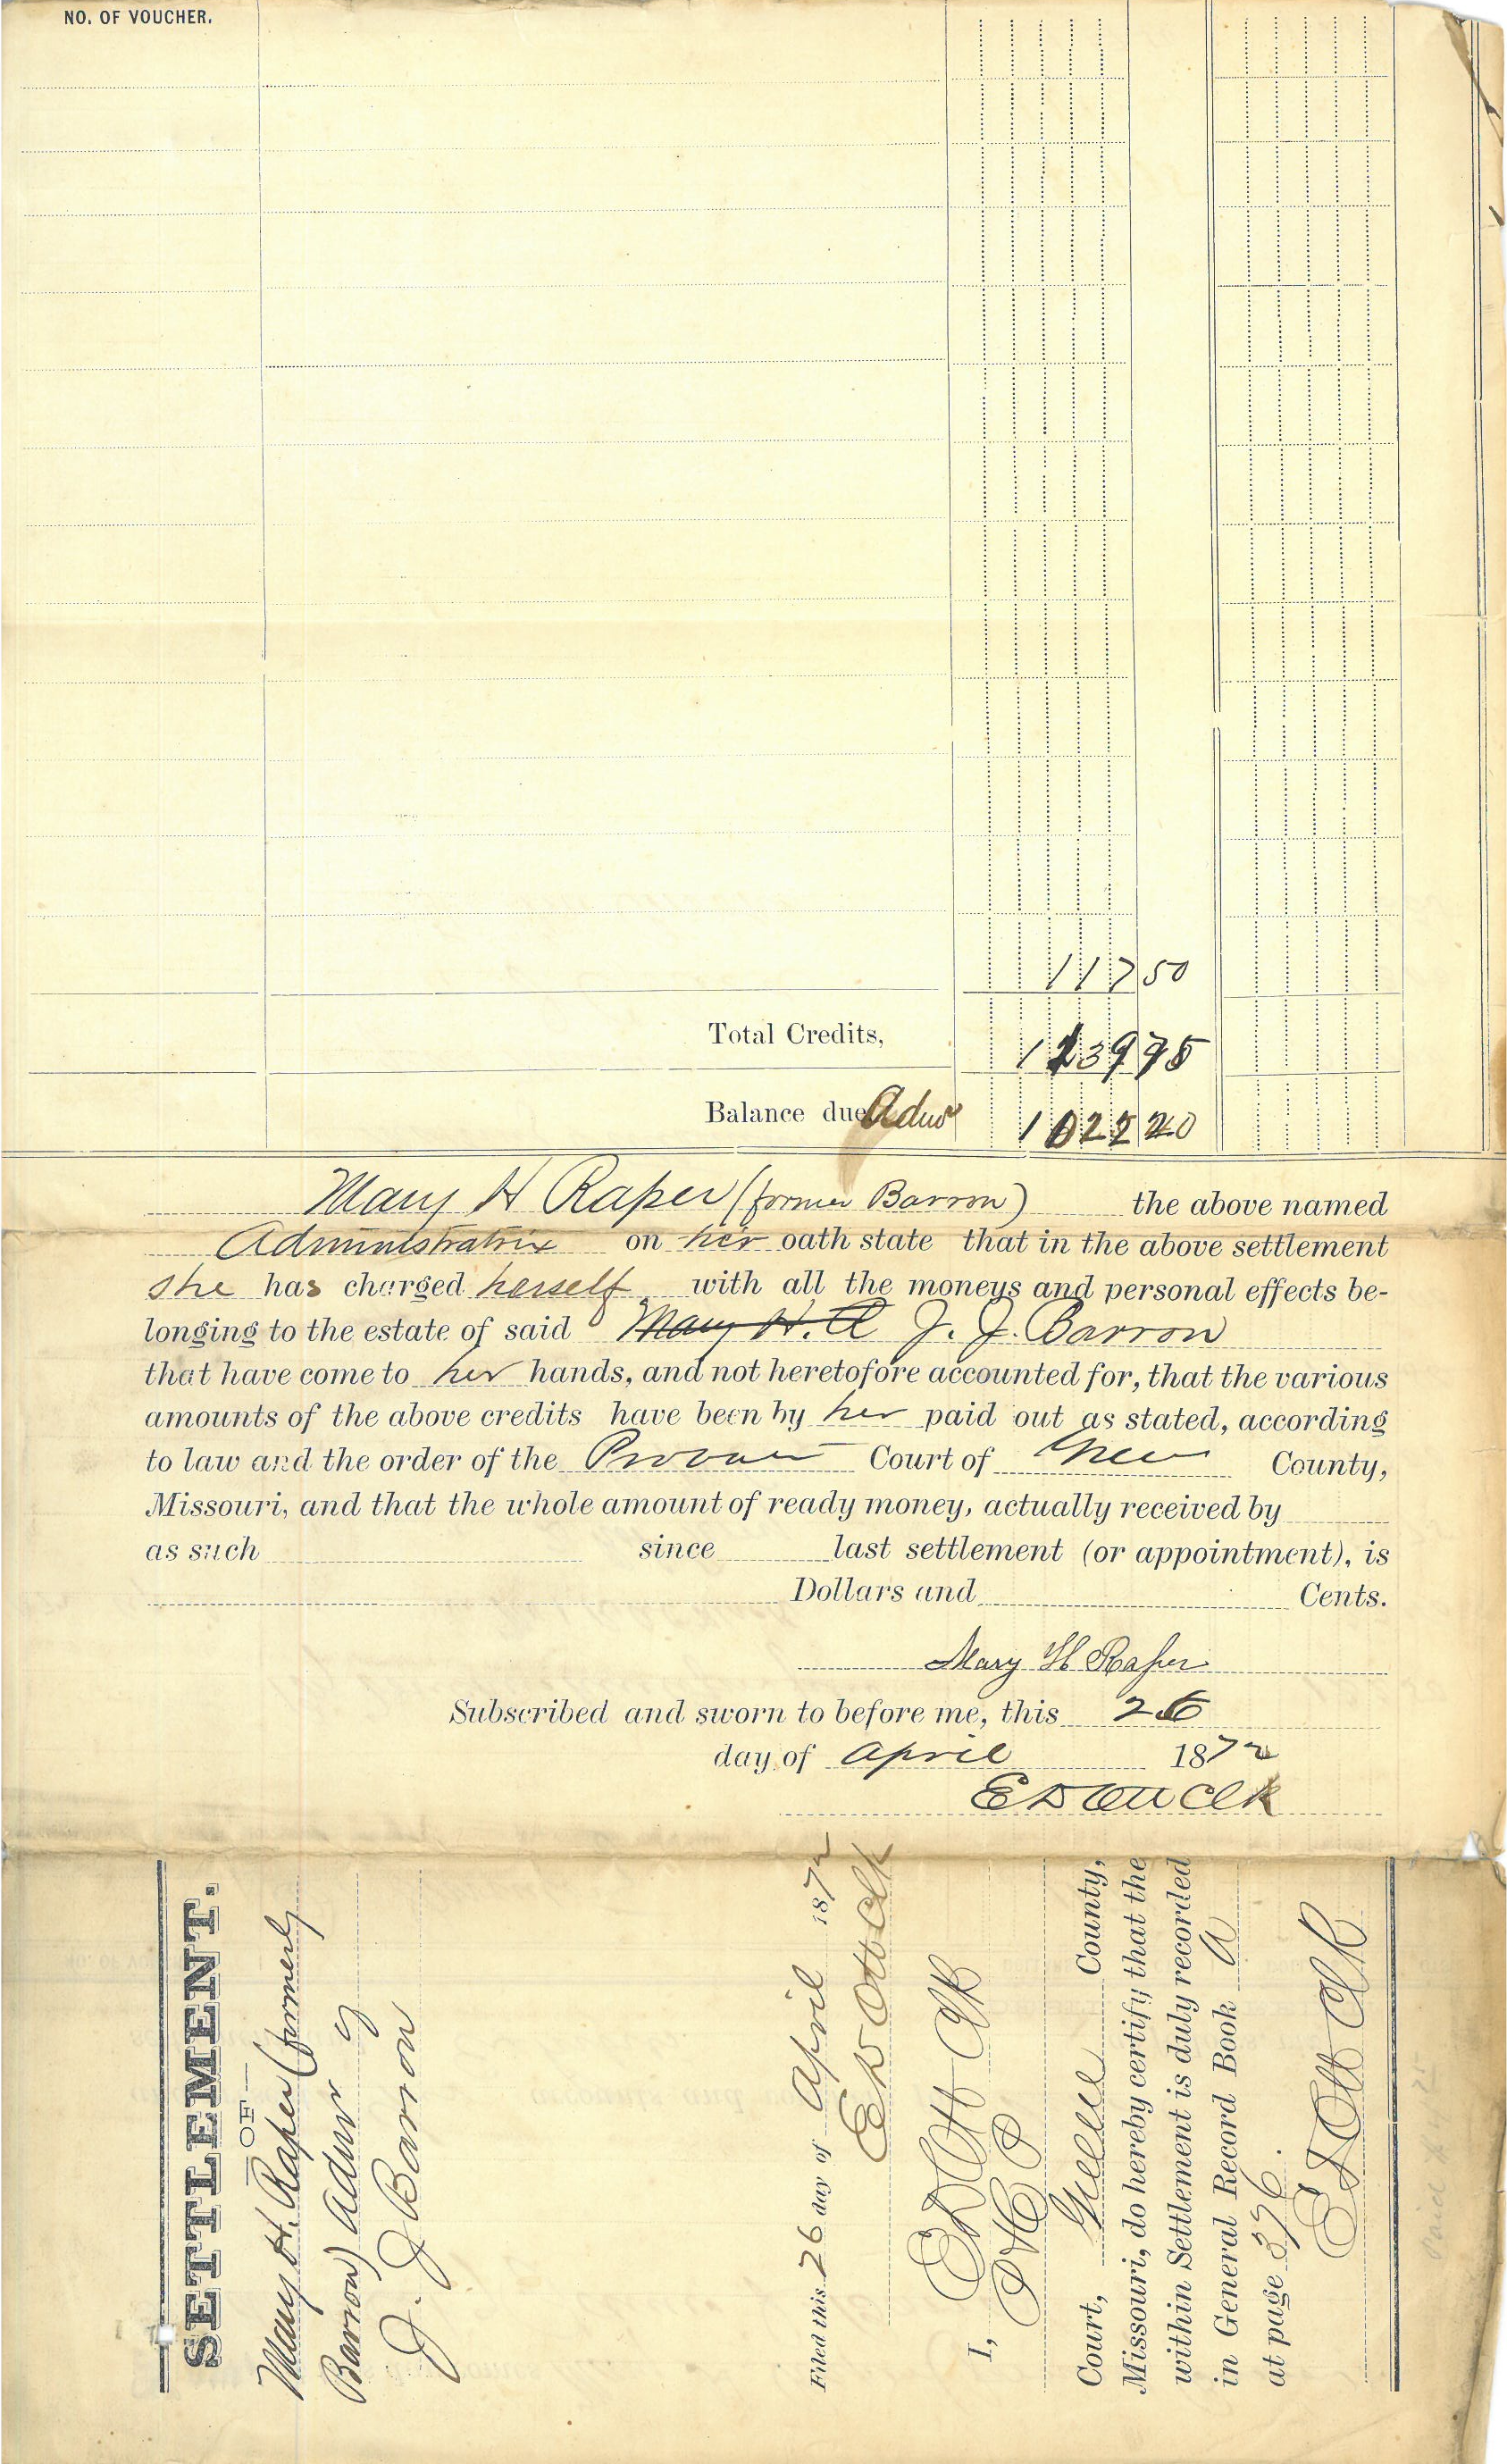 NO. OF VOUCHER.
117 50
Total Credits, 1239 75
Balance due Admr 1022 20
Mary H Raper (former Barron) the above named
Administratrix on her oath state that in the above settlement
she has charged herself with all the moneys and personal effects be-
longing to the estate of said Mary H. R J. J. Barron
that have come to her hands, and not heretofore accounted for, that the various
amounts of the above credits have been by her paid out as stated, according
to law and the order of the Court of County,
Missouri, and that the whole amount of ready money, actually received by
as such since last settlement (or appointment), is
Dollars and Cents.
Mary H Raper
Subscribed and sworn to before me, this 26
day of April 1872
E D Ott Clk
SETTLEMENT.
—OF—
Mary H. Raper (formerly
Barron) Admr of
J. J Barron
Filed this 26 day of April 1872
E D Ott Clk
I, E D Ott Clk
Court, Greene County,
Missouri, do hereby certify that the
within Settlement is duly recorded
in General Record Book A
at page 376.
E D Ott Clk